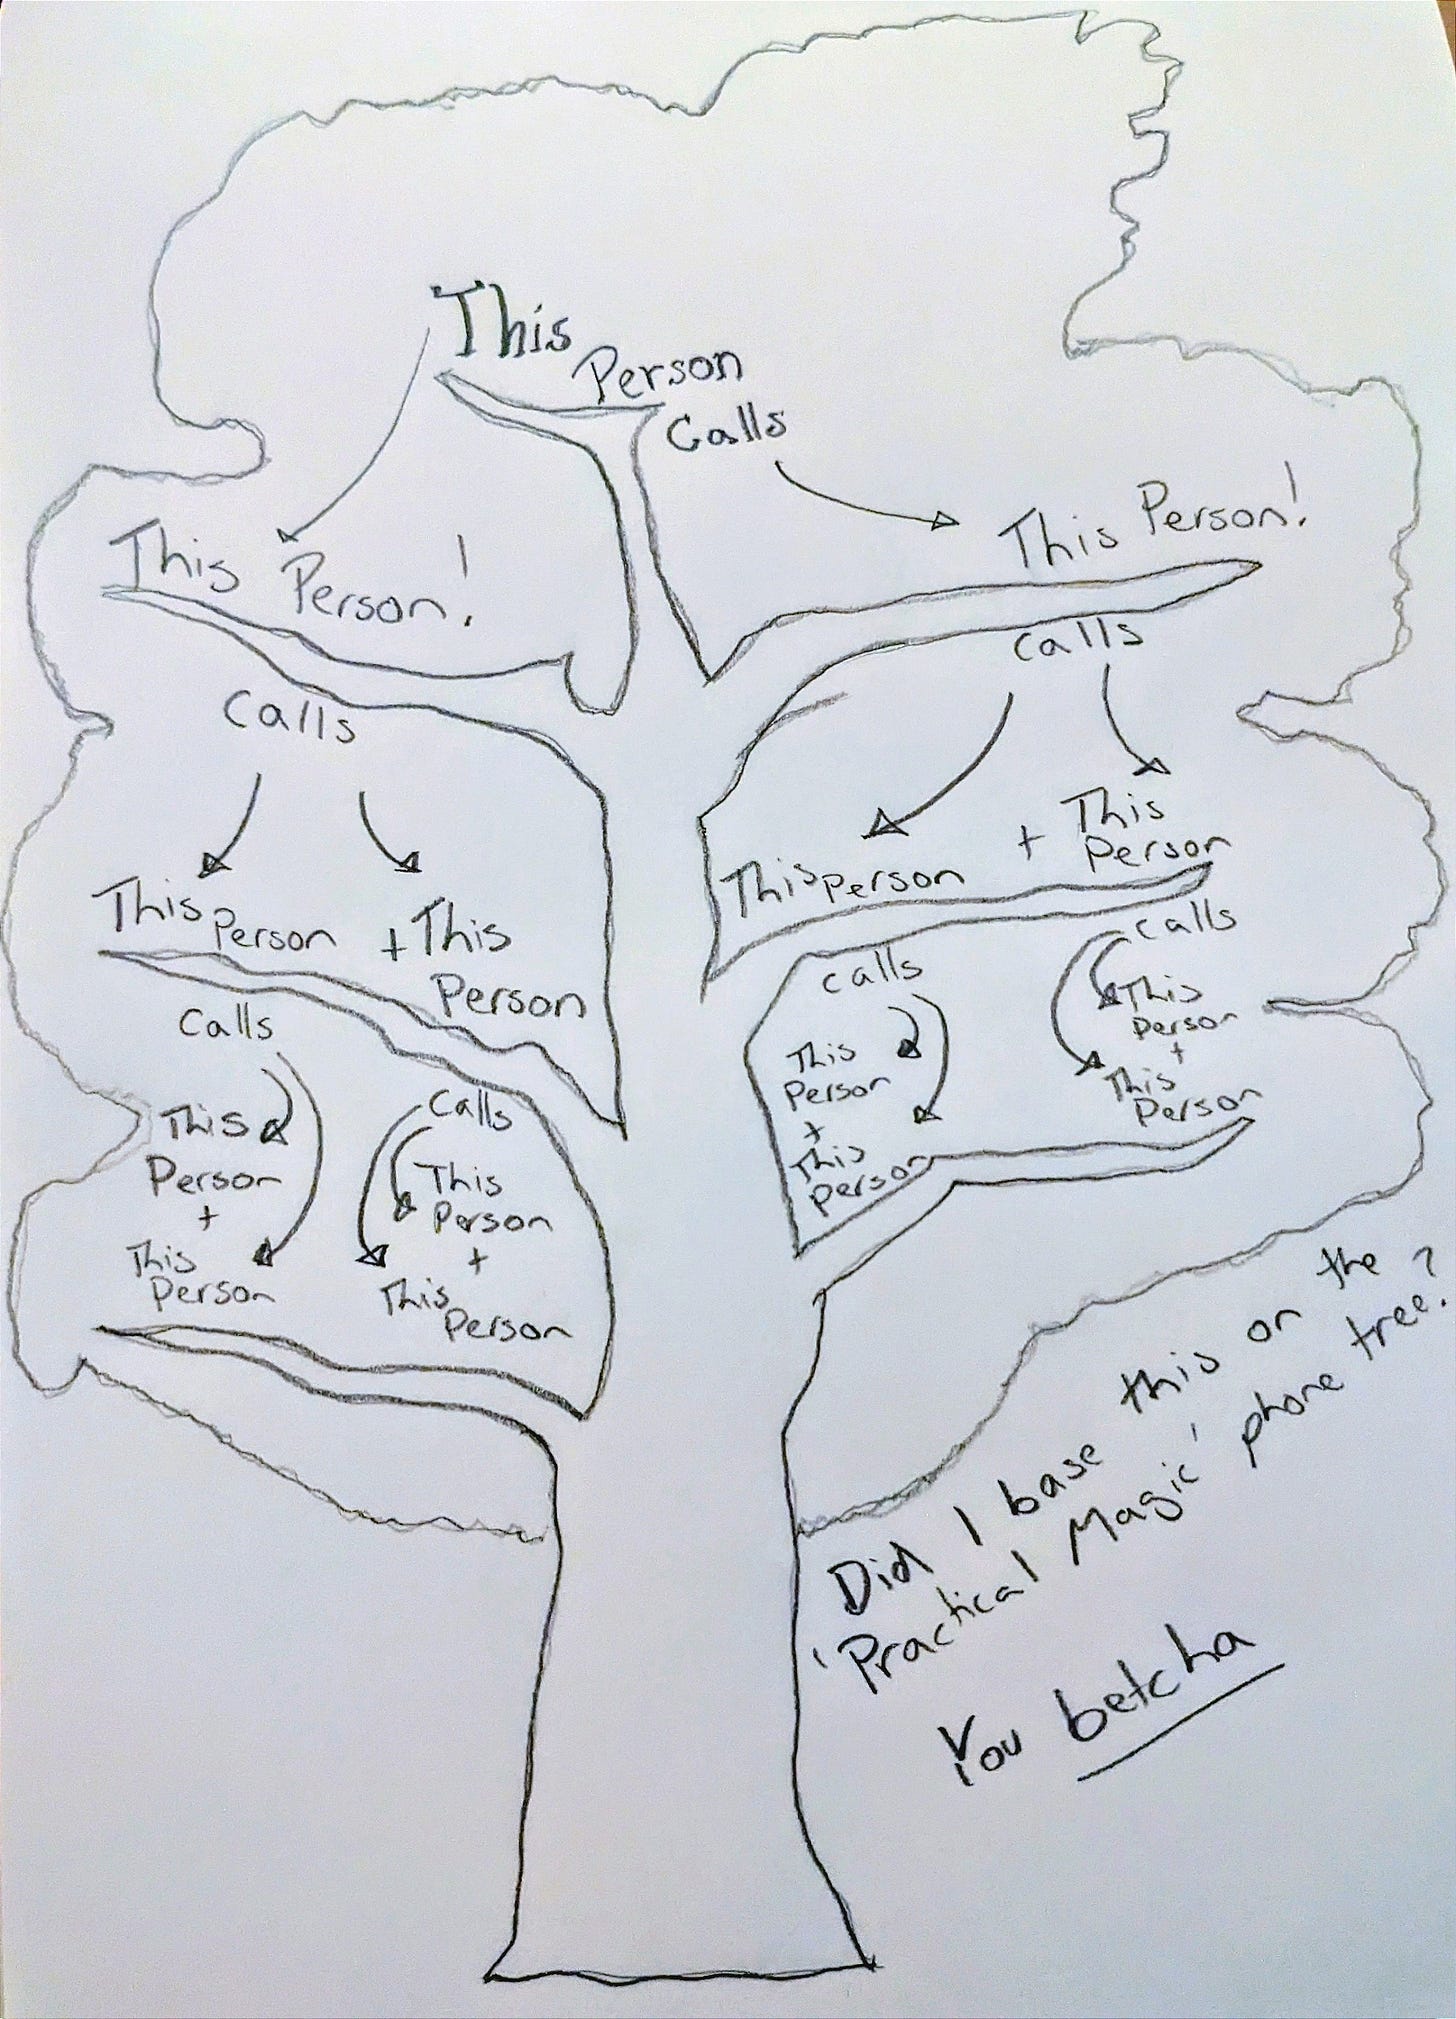 This
Person
Calls
This Person!
This Person!
calls
calls
This Person + This Person
This person + This Person
calls
calls
This
Person
+
This
Person
calls
This
Person
+
This
Person
calls
This
Person
+
This
Person
calls
This
Person
+
This
Person
Did I base this on the
'Practical Magic' phone tree?
You betcha